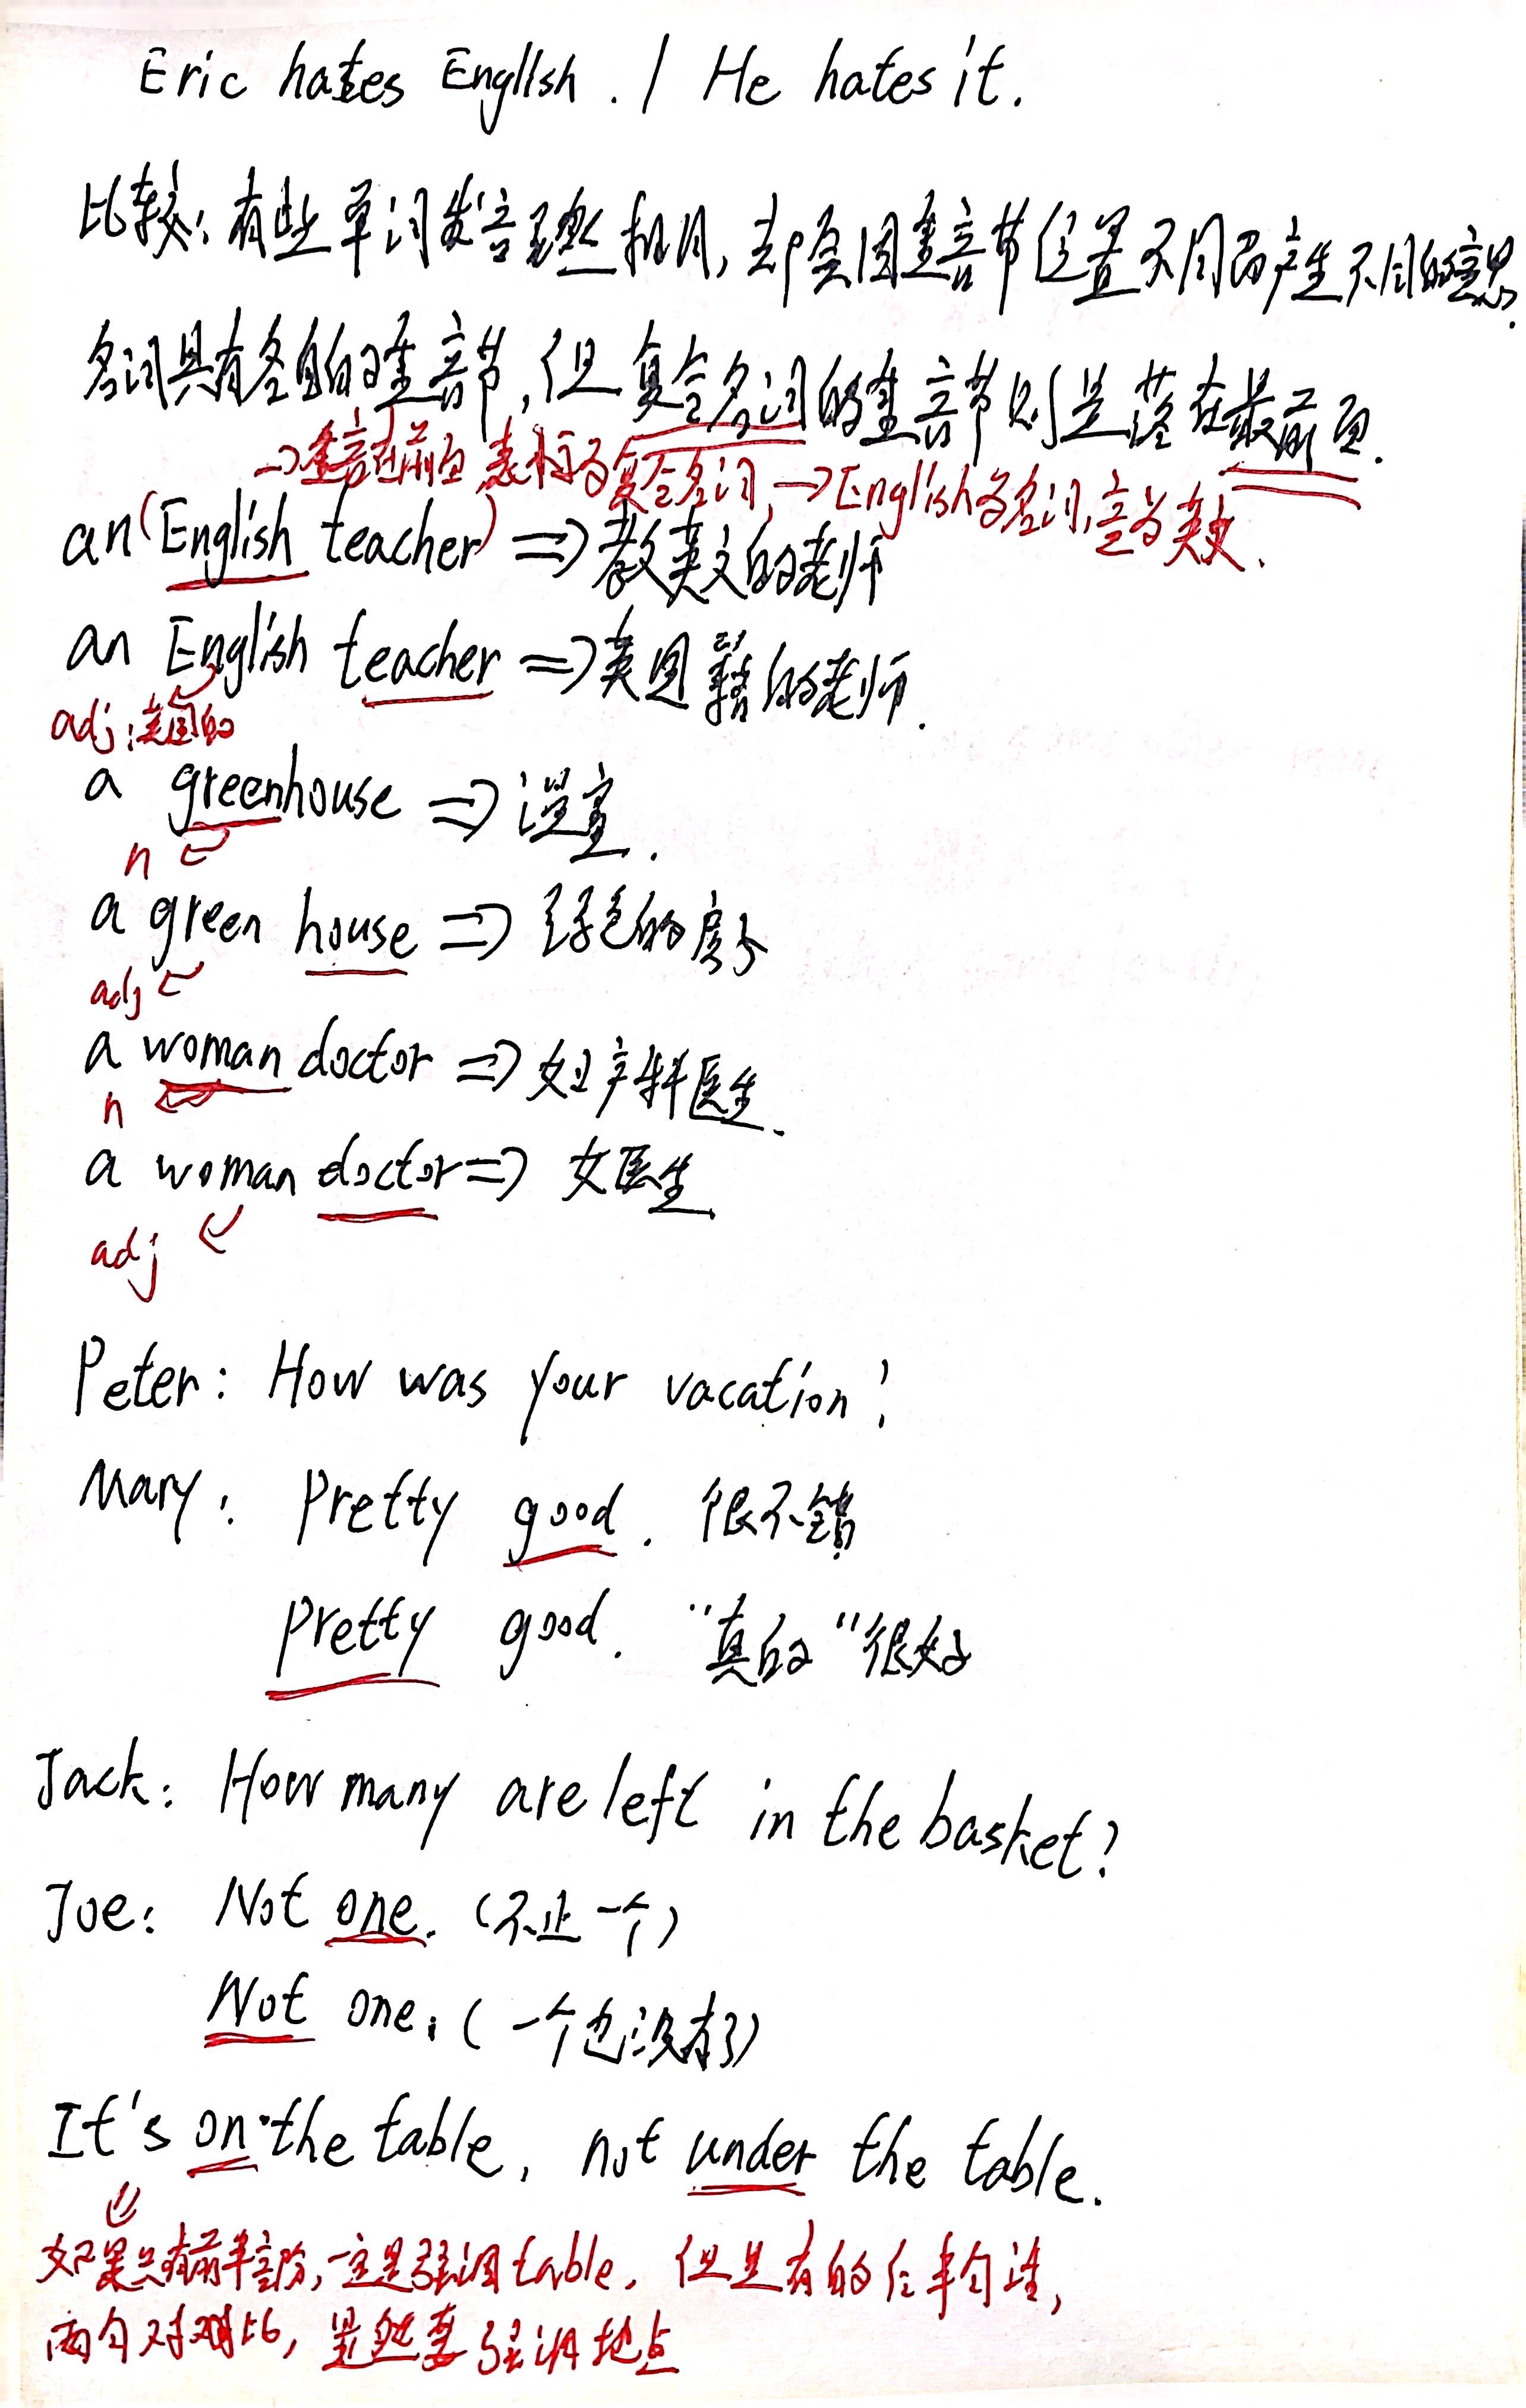 Eric hates English. / He hates it.
比较: 有些单词发音虽然相同, 却会因重音节位置不同而产生不同的意思.
名词具有各自的重音节, 但复合名词的重音节则是落在最前面.
→重音在前面 表示为复合名词, →English为名词, 意为英文.
an (English teacher) => 教英文的老师
an English teacher => 英国籍的老师.
adj: 英国的
a greenhouse => 温室.
n
a green house => 绿色的房子
adj
a woman doctor => 妇产科医生.
n
a woman doctor => 女医生
adj
Peter: How was your vacation?
Mary: Pretty good. 很不错
Pretty good. "真的"很好
Jack: How many are left in the basket?
Joe: Not one. (不止一个)
Not one. (一个也没有了)
It's on the table, not under the table.
如果只有前半部分, 一定是强调table. 但是有的后半句话,
两句对比, 显然要强调地点